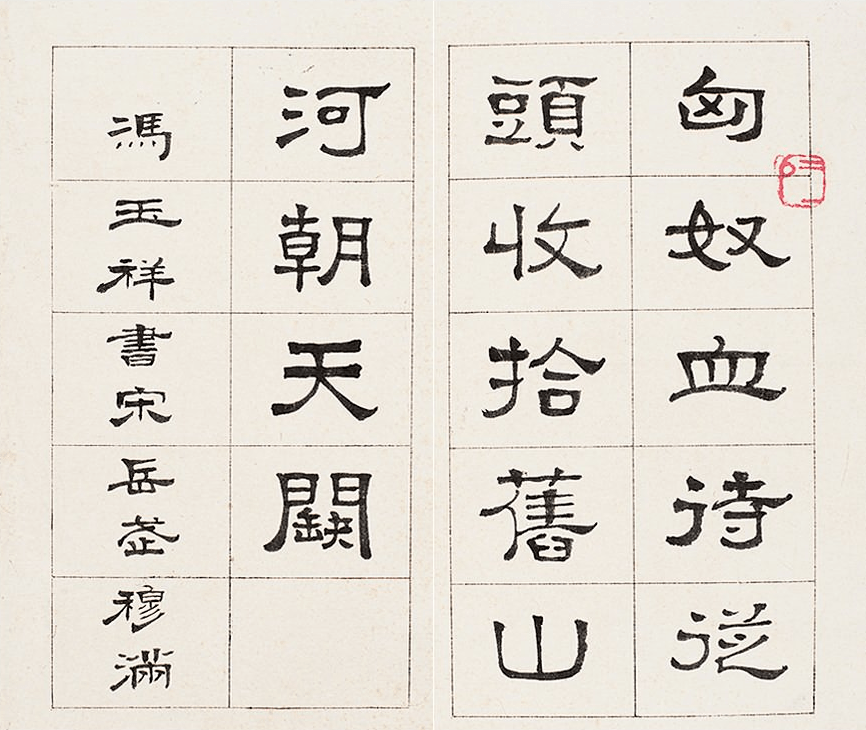 匈奴血待從
頭收拾舊山
河朝天闕
馮玉祥書宋岳武穆滿